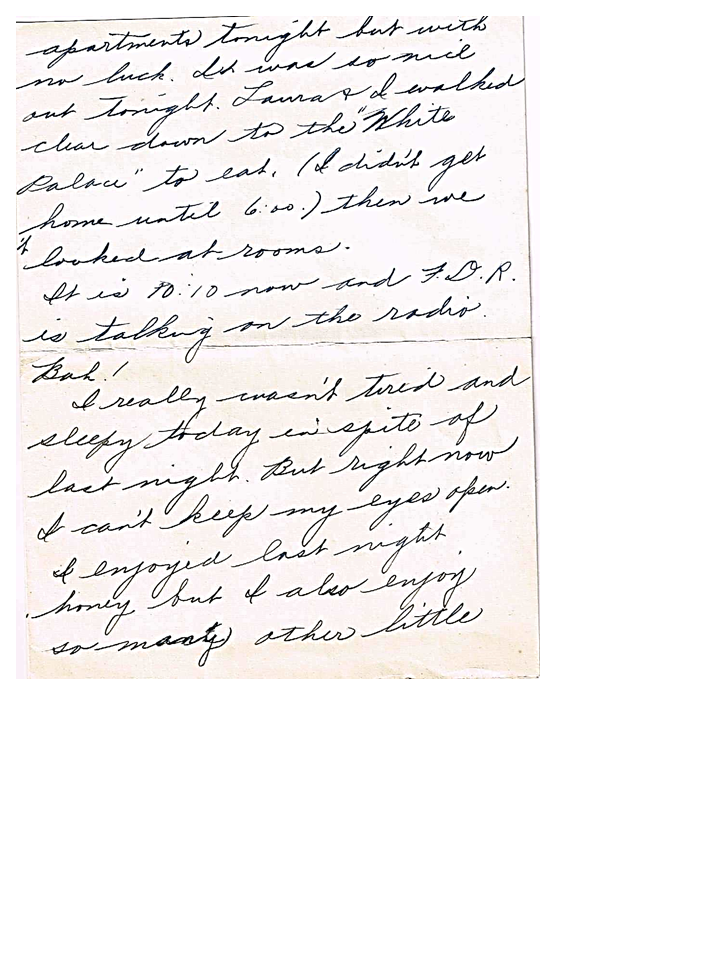 apartments tonight but with
no luck. It was so nice
out tonight. Laura & I walked
clear down to the "White
Palace" to eat. (I didn't get
home until 6:00.) then we
looked at rooms.
It is 10:10 now and F.D.R.
is talking on the radio.
Bah!
I really wasn't tired and
sleepy today in spite of
last night. But right now
I can't keep my eyes open.
I enjoyed last night
honey but I also enjoy
so many other little